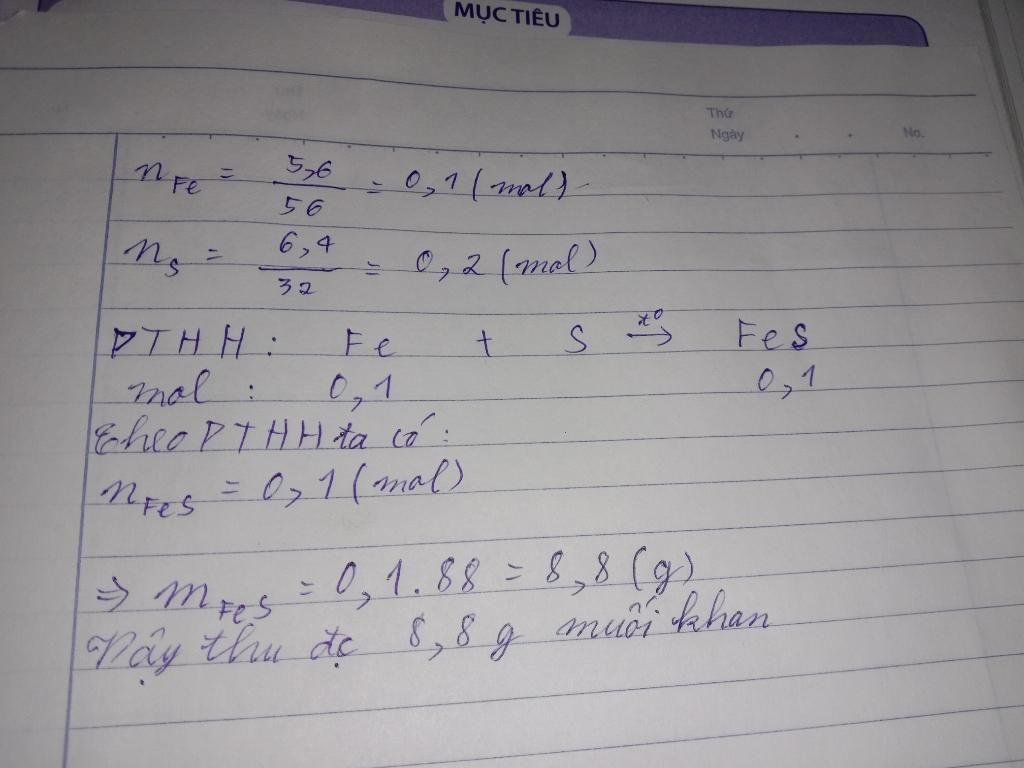 MỤC TIÊU
Thứ
Ngày
No.
n Fe = 5,6 / 56 = 0,1 (mol)
n S = 6,4 / 32 = 0,2 (mol)
PTHH : Fe + S t⁰→ FeS
mol : 0,1 0,1
Theo PTHH ta có :
n FeS = 0,1 (mol)
⇒ m FeS = 0,1.88 = 8,8 (g)
Vậy thu đc 8,8 g muối khan